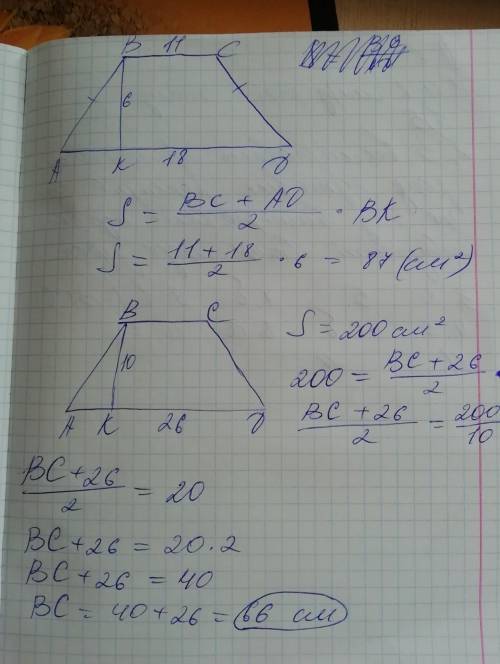 B 11 C
6
A K 18 D
S = (BC + AD)/2 · BK
S = (11 + 18)/2 · 6 = 87 (см²)
B C
10
A K 26 D
S = 200 см²
200 = (BC + 26)/2 ·
(BC + 26)/2 = 200/10
(BC + 26)/2 = 20
BC + 26 = 20 · 2
BC + 26 = 40
BC = 40 + 26 = 66 см